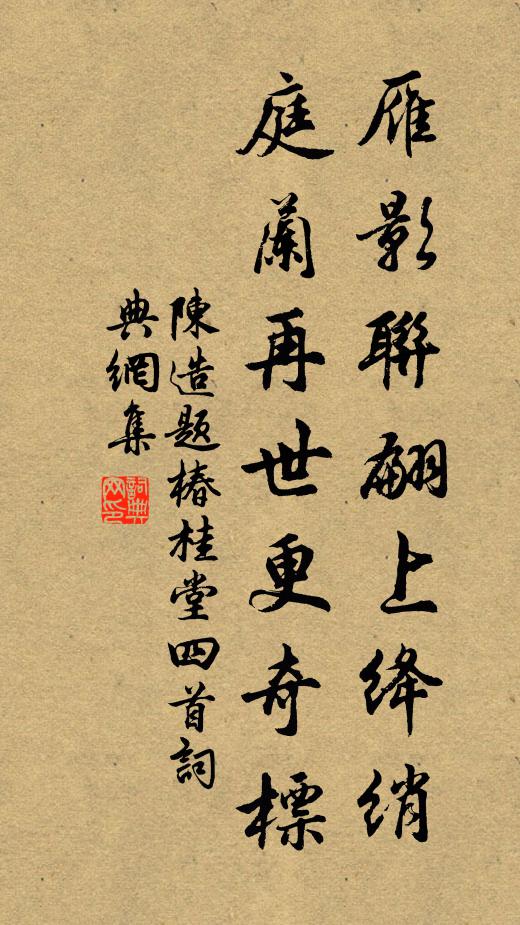 雁影聯翩上絳綃
庭蘭再世更奇標
陳造題椿桂堂四首詞
典網集
詞典網印